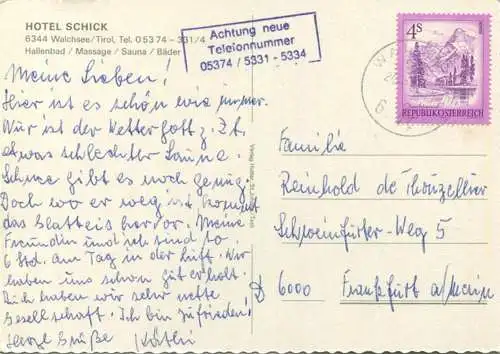 HOTEL SCHICK
6344 Walchsee/Tirol, Tel. 05374 - 331/4
Hallenbad / Massage / Sauna / Bäder
Achtung neue
Telefonnummer
05374 / 5331 - 5334
4 S
REPUBLIK ÖSTERREICH
Meine Lieben!
Hier ist es schön wie immer.
Nur ist der Wettergott z. Zt.
etwas schlechter Laune.
Schnee gibt es noch genug.
Doch wo er weg ist kommt
das Glatteis hervor. Meine
Freundin und ich sind so
6 Std. am Tag in der Luft. Wir
haben uns schon gut erholt.
Auch haben wir sehr nette
Gesellschaft. Ich bin zufrieden!
Herzl. Grüße Käthi
Familie
Reinhold de
Schweinfurter-Weg 5
D 6000 Frankfurt a/Main